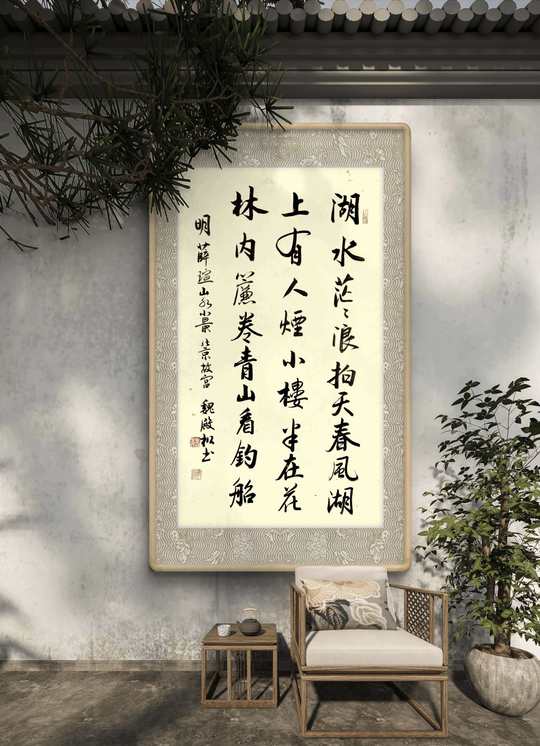 湖水茫〻浪拍天春風湖
上有人煙小樓半在花
林内簾卷青山看釣船
明薛瑄山水小景北京故宫魏松书